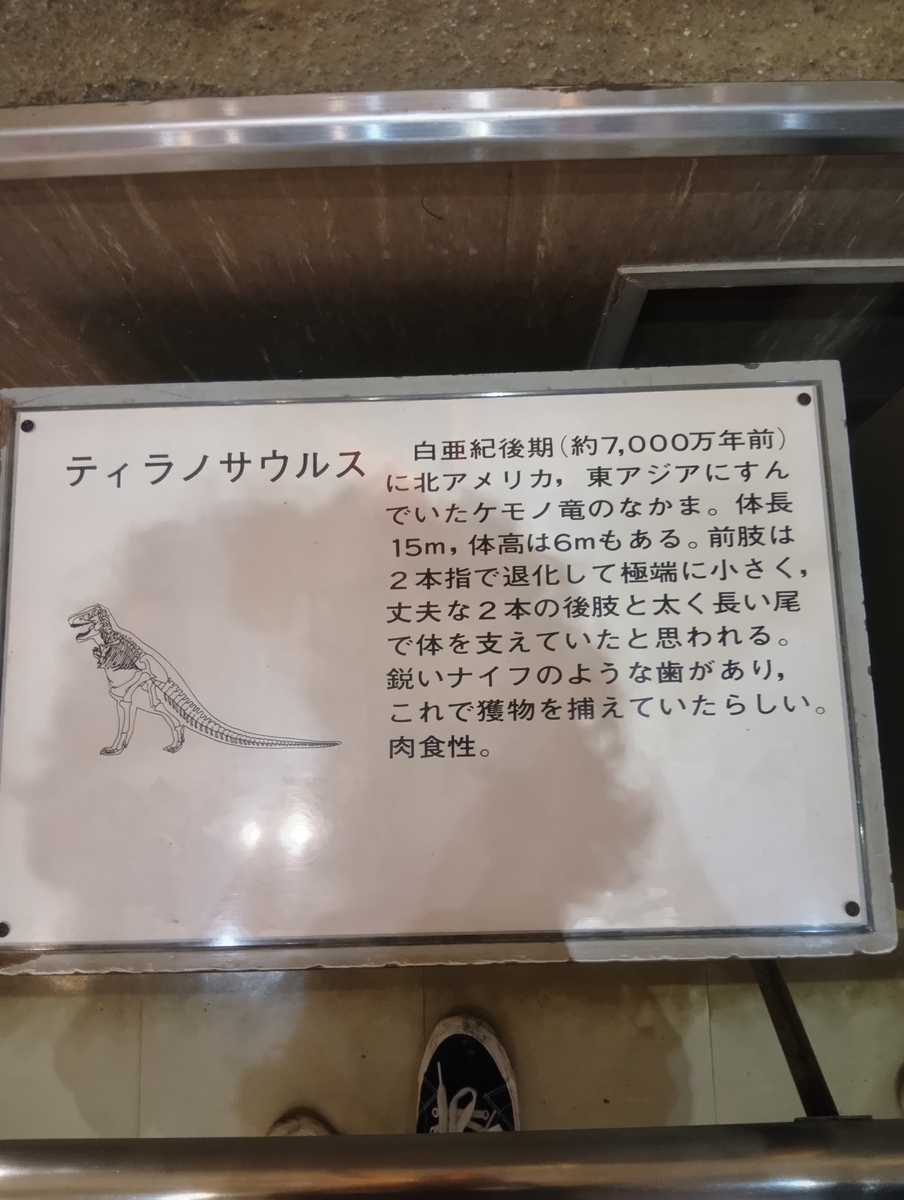 ティラノサウルス
白亜紀後期(約7,000万年前)
に北アメリカ，東アジアにすん
でいたケモノ竜のなかま。体長
15m，体高は6mもある。前肢は
2本指で退化して極端に小さく，
丈夫な2本の後肢と太く長い尾
で体を支えていたと思われる。
鋭いナイフのような歯があり，
これで獲物を捕えていたらしい。
肉食性。